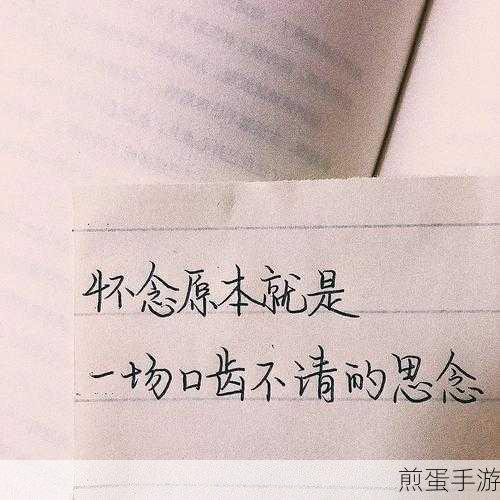 怀念原本就是
一场口齿不清的思念
煎蛋手游